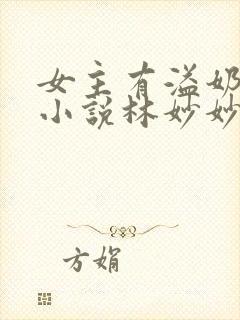 女主有溢奶
小说林妙妙
方娟